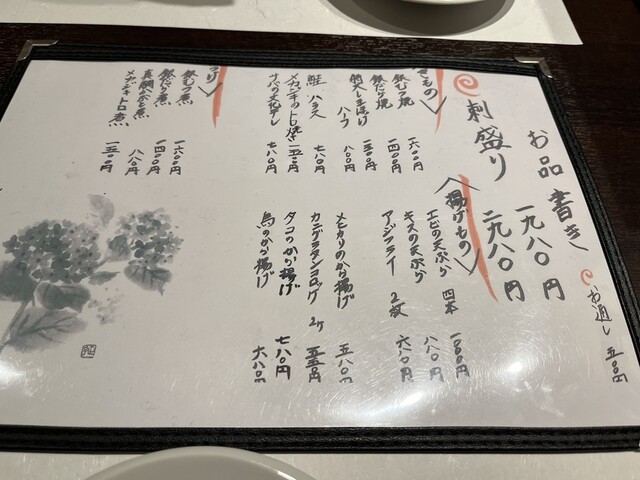 お品書き
お通し 五〇円
刺盛り 一九八〇円
二九八〇円
きもの〉
銀むつ焼 一六〇〇円
銀だら焼 一四〇〇円
特大しまほっけ 一五〇〇円
ハーフ 八〇〇円
鮭ハラス 七八〇円
メカジキのトロ焼き 一五〇〇円
サバの文化干し 七八〇円
〈揚げもの〉
エビの天ぷら 四本 一〇〇〇円
キスの天ぷら 八八〇円
アジフライ 2枚 六八〇円
メヒカリのから揚げ 五八〇円
カニグラタンコロッケ 2ヶ 五五〇円
タコのから揚げ 七八〇円
鳥のから揚げ 六八〇円
銀むつ煮 一六〇〇円
銀だら煮 一四〇〇円
真鯛かぶと煮 八八〇円
メカジキトロ煮 一五〇〇円